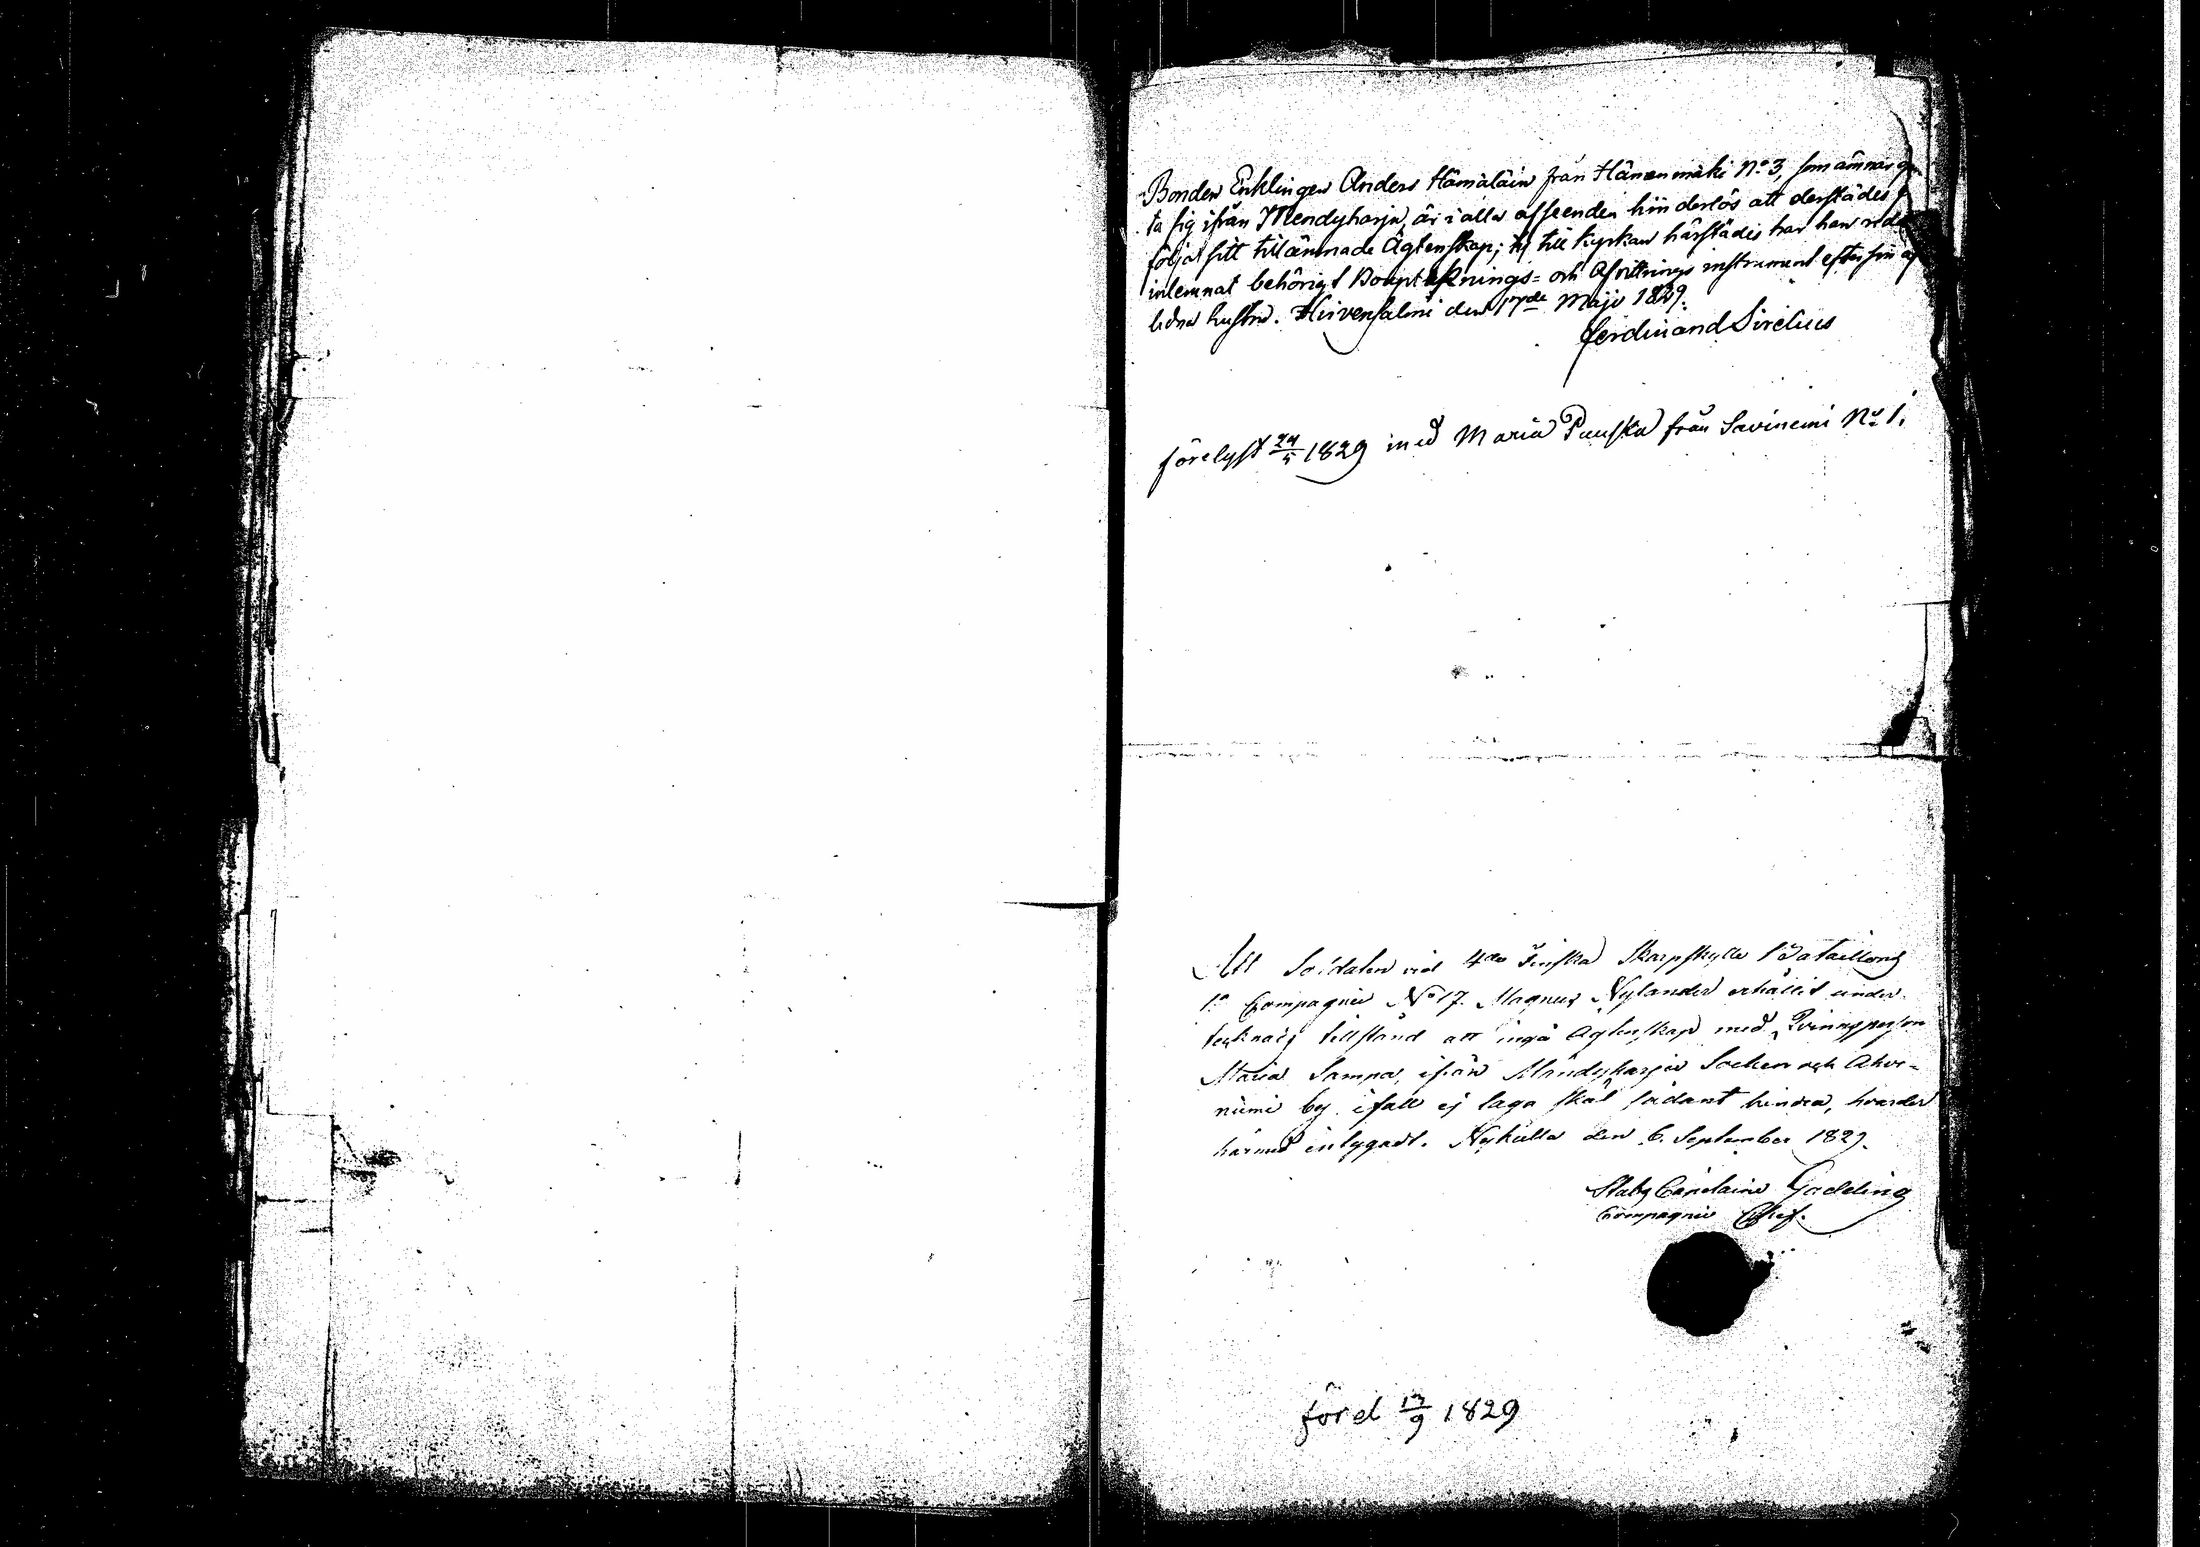 Bonden Enklingen Anders Hämäläin från Hänenmäki No 3, som ämnar gif
ta sig ifrån Mendyharju, är i alla afseenden hinderlös att derstädes
följa sitt tillämnade Ägtenskap; ty till kyrkan härstädes har han redan
inlemnat behörigt Boupteknings- och Afvittrings instrument efter sin af
lidna hustru. Hirvensalmi den 17de Maji 1829.
Ferdinand Sirelius
förelyst 24/5 1829 med Maria Puuska från Savinemi No 1.
Att Soldaten vid 4de Finska Skarpskytte Bataillons
1a Compagnie No 17. Magnus Nylander erhållit under-
teknads tillstånd att ingå Agtenskap med Qvinnsperson
Maria Sampa, ifrån Mändyharju Socken och Ahve-
niemi by ifall ej laga skäl sådant hindra, hvarder
härmed intygadt. Nykulla den 6. September 1829.
Stabs Capitaine Gadding
Compagnie Chef.
förel 13/9 1829